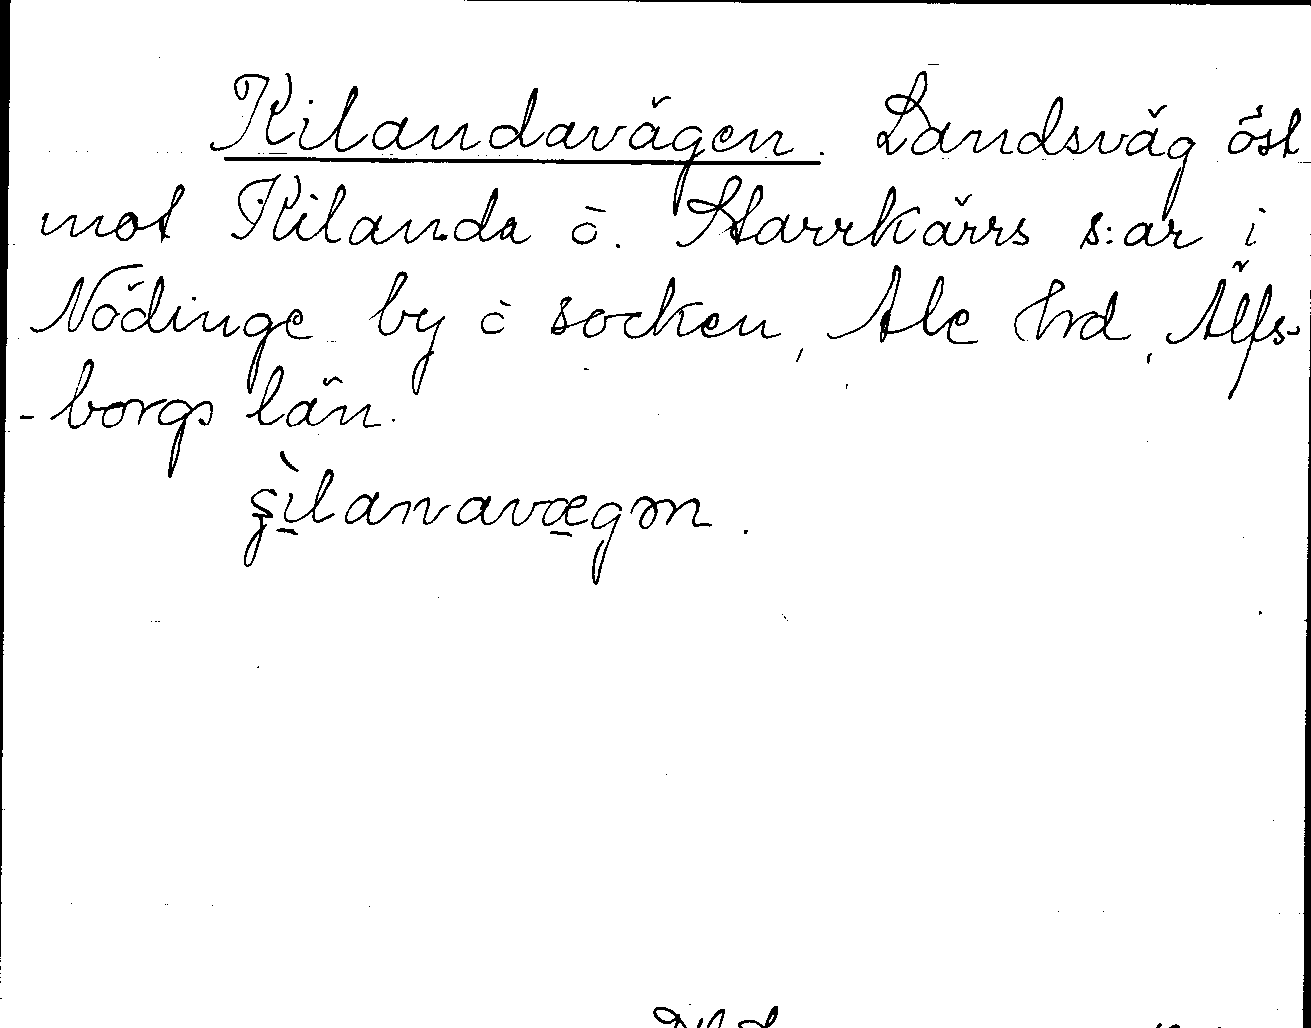 Kilandavägen. Landsväg öst
mot Kilanda o. Starrkärrs s:ar i
Nödinge by o socken, Ale hrd, Älfs-
-borgs län.